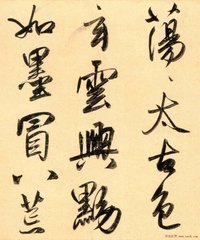 蕩〻太古色
玄雲興
如墨冒八荒